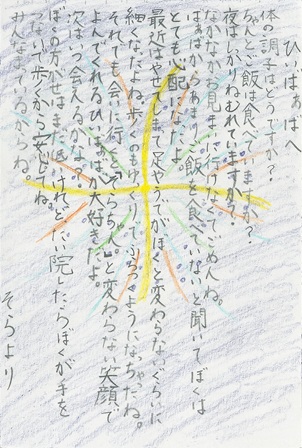 ひいばぁばへ
体の調子はどうですか？
ちゃんとご飯は食べていますか？
夜はしっかりねむれていますか？
なかなかお見まいに行けなくてごめんね。
ばぁばからあまりご飯を食べていないと聞いてぼくは
とても心配になったよ。
最近はやせてきて足やうでがぼくと変わらないぐらいに
細くなったよね。歩くのもゆっくりでふらつくようになっちゃったね。
それでも会いに行くと「そらちゃん。」と変わらない笑顔で
よんでくれるひいばぁばが大好きだよ。
次はいつ会えるかな？
ぼくの方がせはまだ低いけれどたい院したらぼくが手を
つないで歩くから安心してね。
みんなまっているからね。
そらより